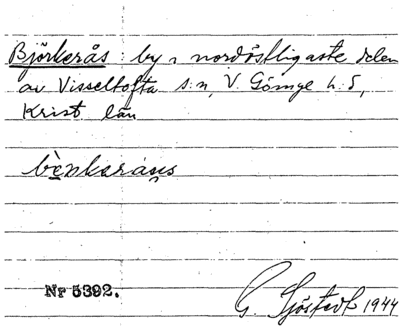 Björkerås by i nordöstligaste delen
av Visseltofta s:n, V. Göinge h.d,
Krist län
Nr 5392.
G. Sjöstedt 1944